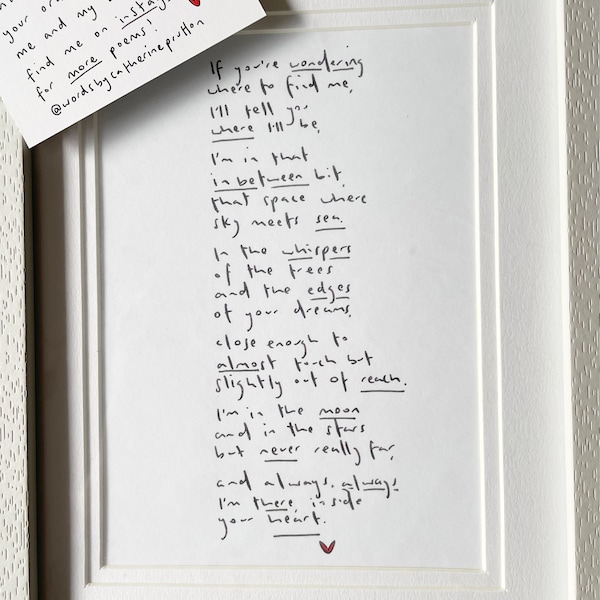 your or
me and my
find me on insta
for more poems!
@wordsbycatherineprutton
If you're wondering
where to find me,
I'll tell you
where I'll be,
I'm in that
inbetween bit,
that space where
sky meets sea.
In the whispers
of the trees
and the edges
of your dreams,
close enough to
almost touch but
slightly out of reach.
I'm in the moon
and in the stars
but never really far,
and always, always
I'm there, inside
your heart.